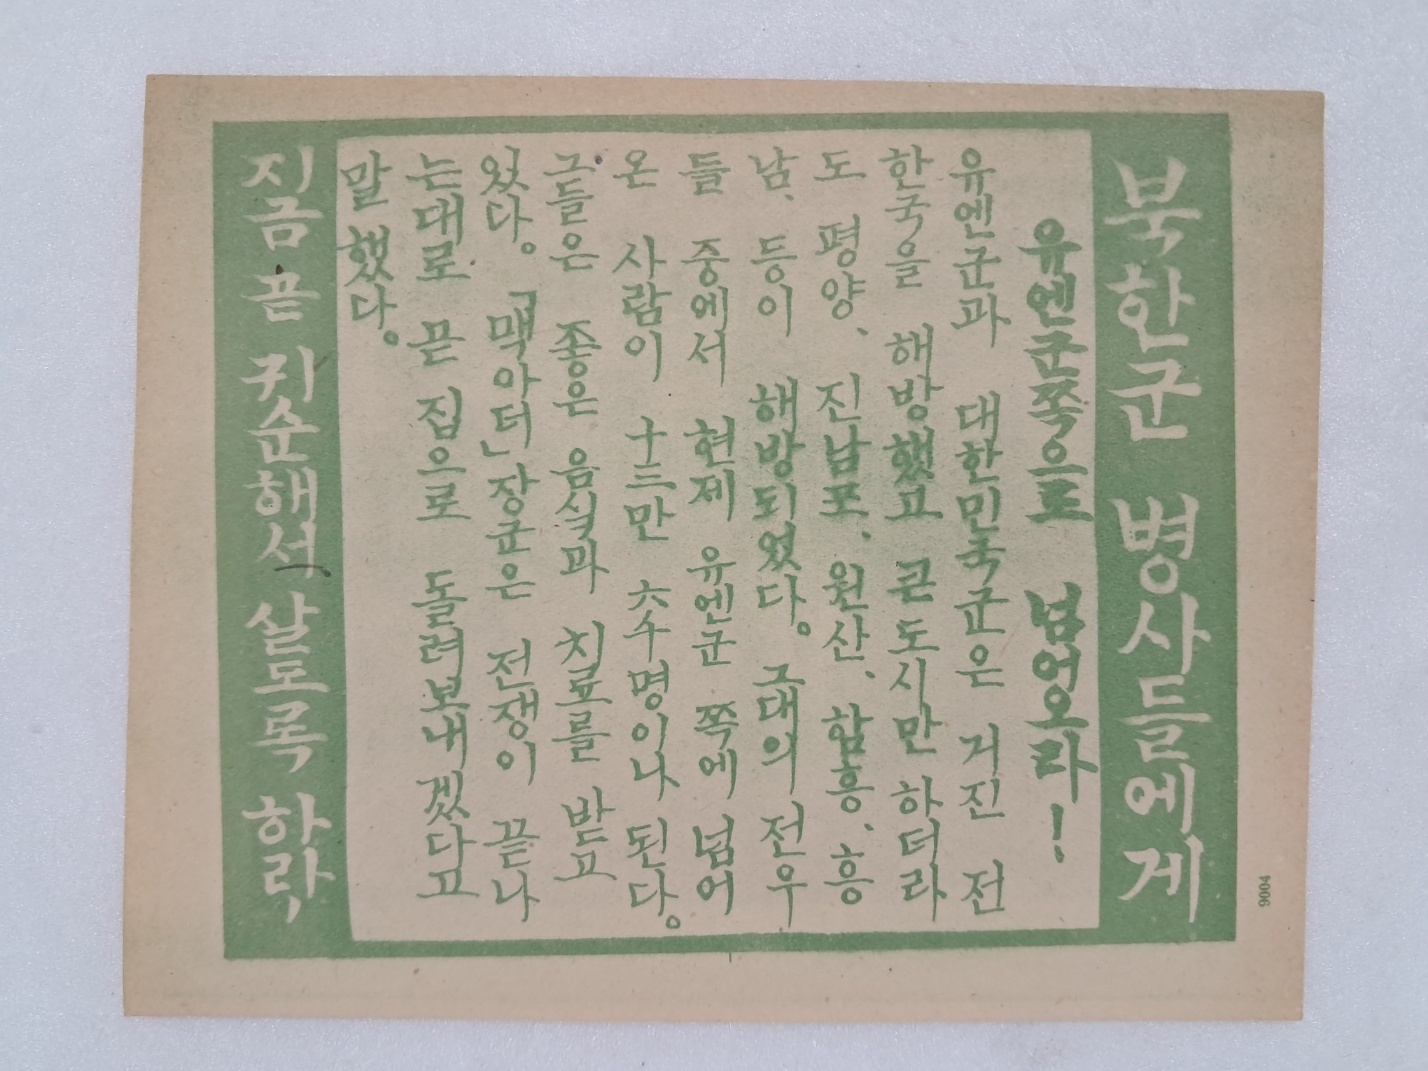 북한군 병사들에게
유엔군쪽으로 넘어오라!
유엔군과 대한민국군은 거진 전
한국을 해방했고 큰도시만 하더라
도 평양、진남포、원산、함흥、흥
남、등이 해방되었다。그대의 전우
들 중에서 현제 유엔군 쪽에 넘어
온 사람이 十三만 六千명이나 된다。
그들은 좋은 음식과 치료를 받고
있다。「맥아더」장군은 전쟁이 끝나
는대로 곧 집으로 돌려보내겠다고
말했다。
지금 곧 귀순해서 살도록 하라
9004